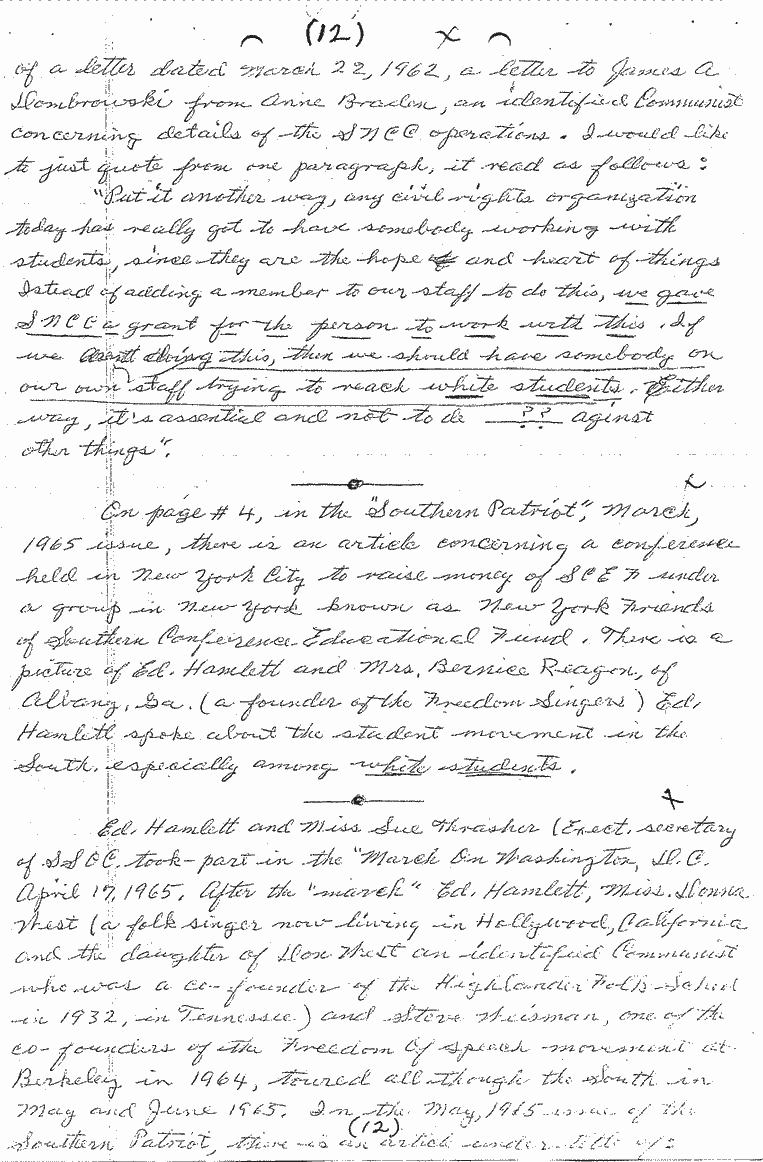 (12) x
of a letter dated March 22, 1962, a letter to James A
Dombrowski from Anne Braden, an identified Communist
concerning details of the SNCC operations. I would like
to just quote from one paragraph, it read as follows:
"Put it another way, any civil rights organization
today has really got to have somebody working with
students, since they are the hope and heart of things
Istead of adding a member to our staff to do this, we gave
SNCC a grant for the person to work with this. If
we arent doing this, then we should have somebody on
our own staff trying to reach white students. Either
way, it's assential and not to de ?? aginst
other things".
x
On page # 4, in the "Southern Patriot", March,
1965 issue, there is an article concerning a conference
held in New York City to raise money of SCEF under
a group in New York known as New York Friends
of Southern Conference Educational Fund. There is a
picture of Ed. Hamlett and Mrs. Bernice Reagon, of
Albany, Ga. (a founder of the Freedom Singers) Ed.
Hamlett spoke about the student movement in the
South. especially among white students.
x
Ed. Hamlett and Miss Sue Thrasher (Exect. secretary
of SSOC. took-part in the "March On Washington, D.C.
April 17, 1965. After the "march" Ed. Hamlett, Miss. Donna
West (a folk singer now living in Hollywood, California
and the daughter of Don West an identified Communist
who was a co-founder of the Highlander Folk-School
in 1932, in Tennessee) and Steve Weisman, one of the
co-founders of the Freedom Of speech movement at
Berkeley in 1964, toured all though the South in
May and June 1965. In the May, 1965 issue of the
(12)
Southern Patriot, there is an article under title of: